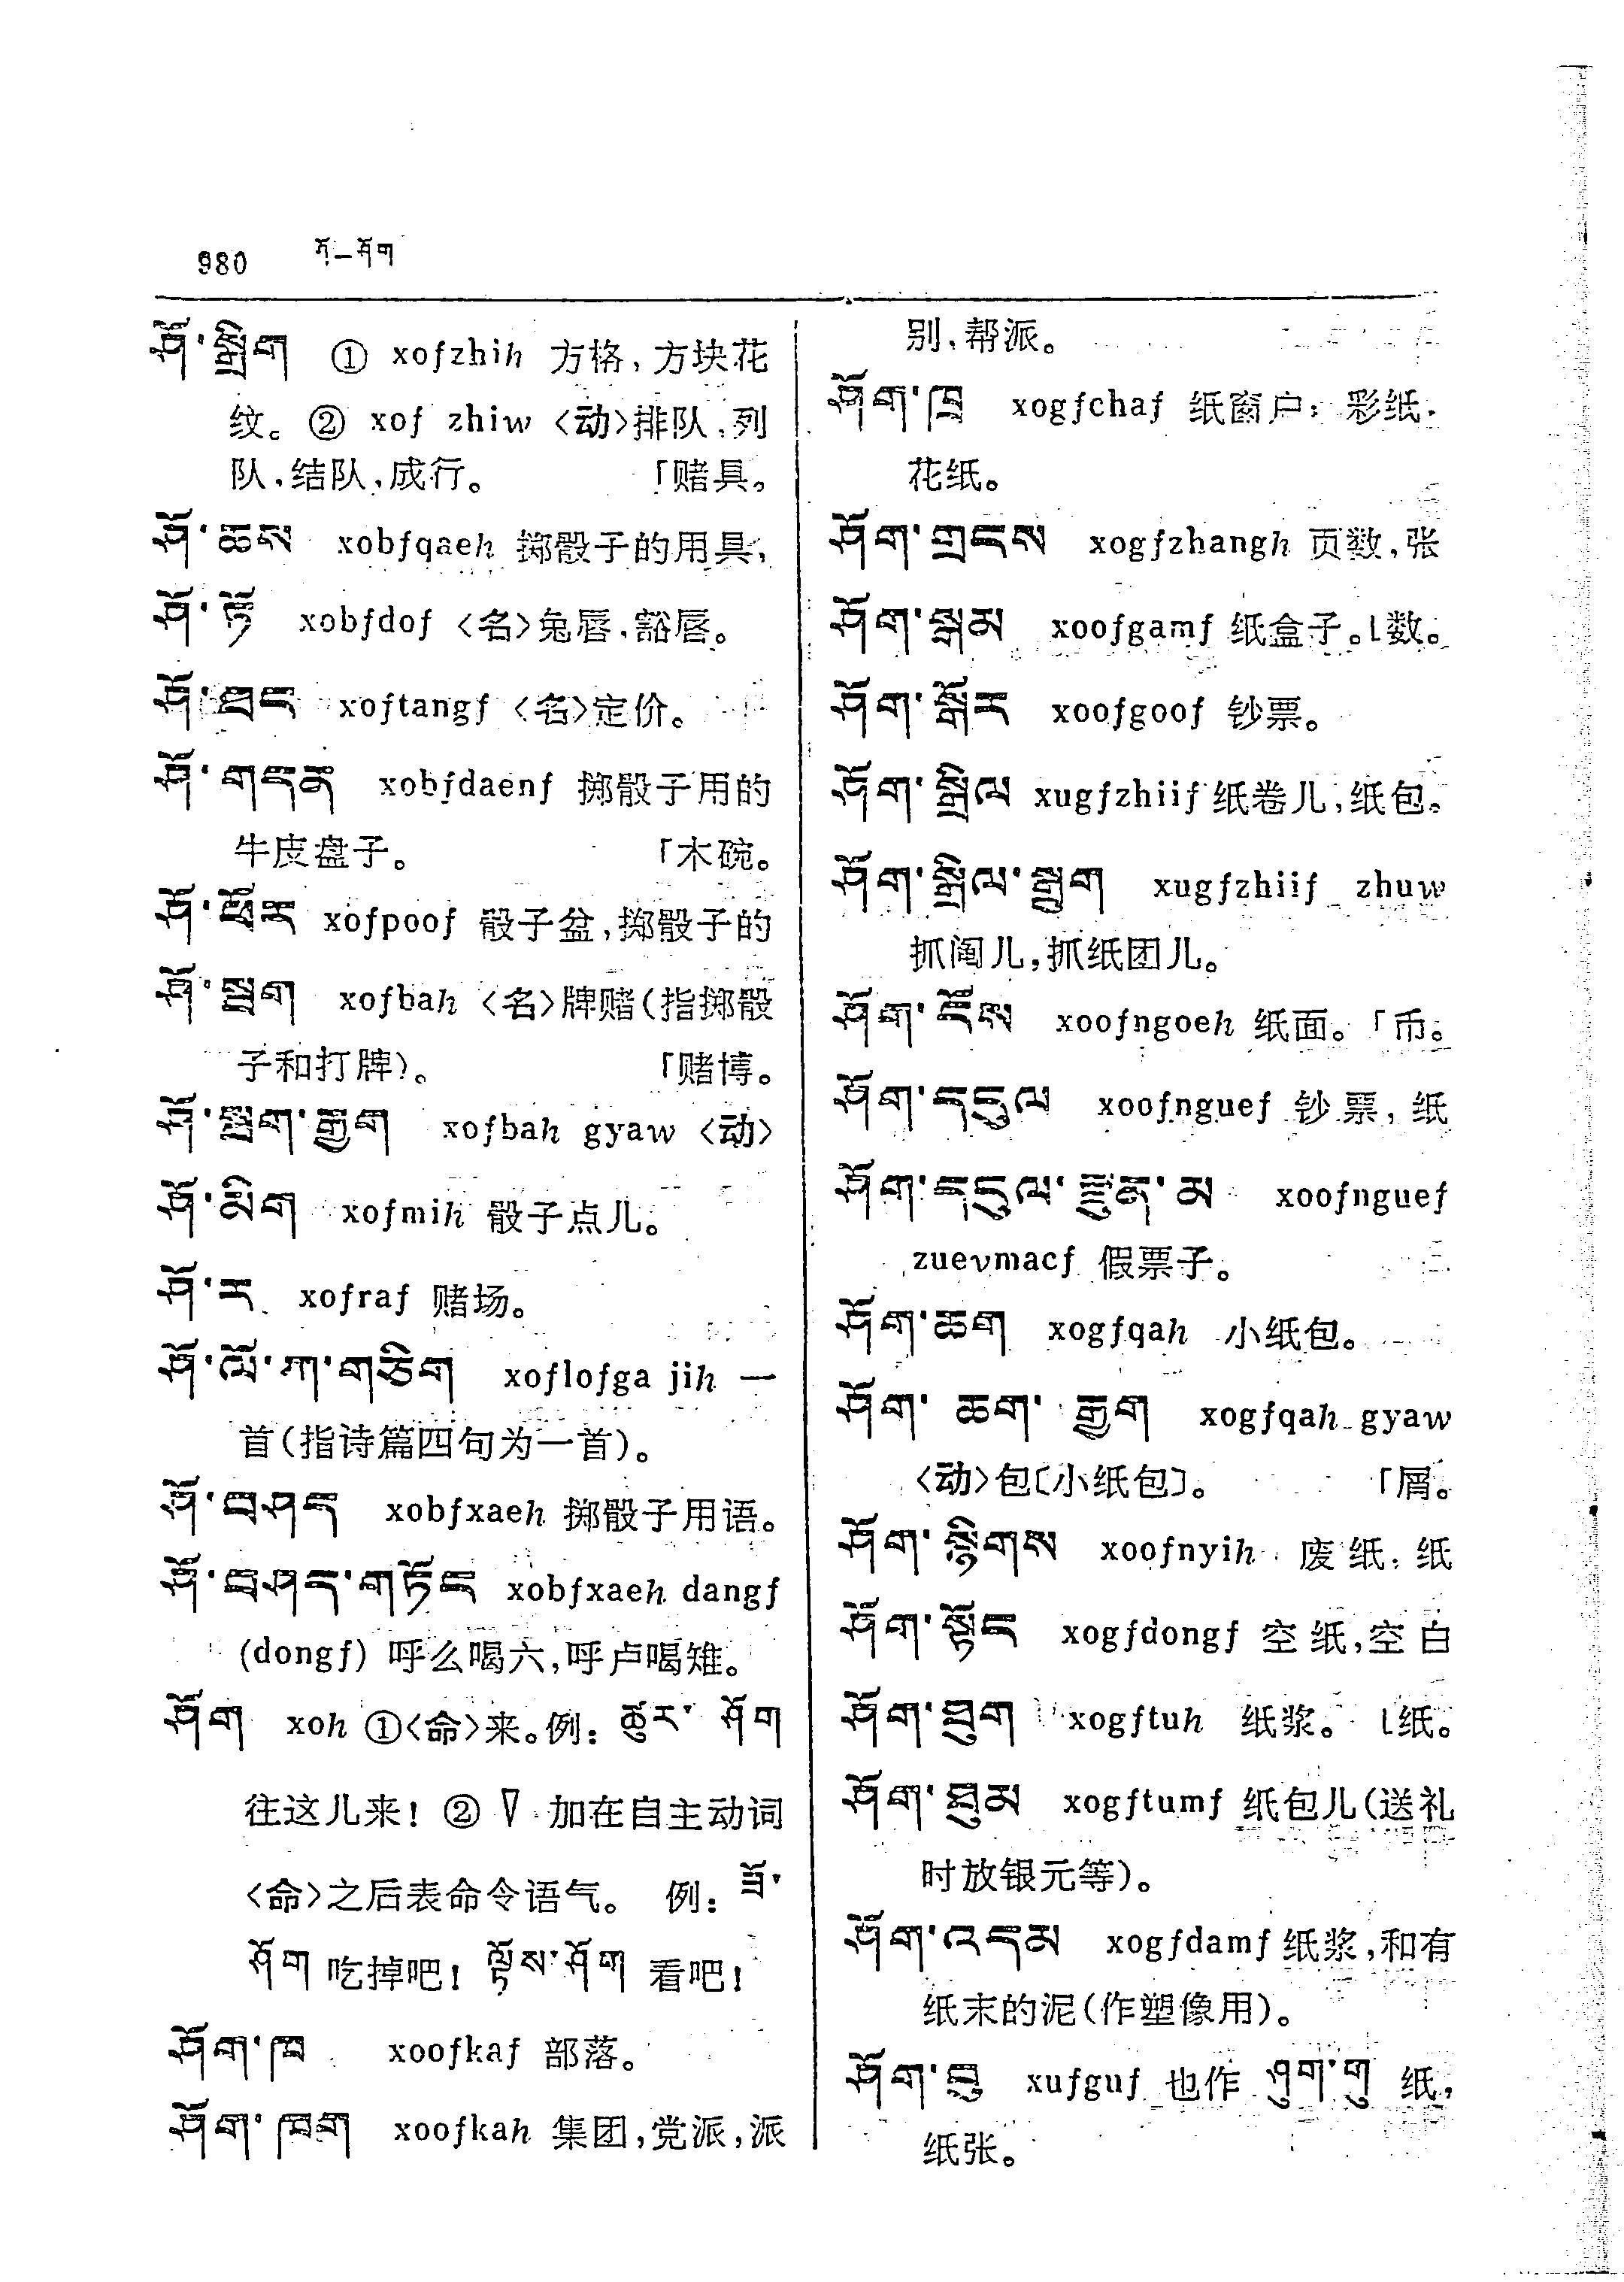 980 ཤོ—ཤོག
ཤོ་སྒྲིག ① xofzhih 方格,方块花
纹。② xof zhiw 〈动〉排队,列
队,结队,成行。 「赌具。
ཤོ་ཆས xobfqaeh 掷骰子的用具,
ཤོ་ཏོ xobfdof 〈名〉兔唇,豁唇。
ཤོ་ཐང xoftangf 〈名〉定价。
ཤོ་གདན xobfdaenf 掷骰子用的
牛皮盘子。 「木碗。
ཤོ་ཕོར xofpoof 骰子盆,掷骰子的
ཤོ་སྦག xofbah 〈名〉牌赌(指掷骰
子和打牌)。 「赌博。
ཤོ་སྦག་རྒྱག xofbah gyaw 〈动〉
ཤོ་མིག xofmih 骰子点儿。
ཤོ་ར xofraf 赌场。
ཤོ་ལོ་ཀ་གཅིག xoflofga jih 一
首(指诗篇四句为一首)。
ཤོ་བཤད xobfxaeh 掷骰子用语。
ཤོ་བཤད་གཏོང xobfxaeh dangf
(dongf) 呼么喝六,呼卢喝雉。
ཤོག xoh ①〈命〉来。例: ཚུར་ ཤོག
往这儿来! ② ∇ 加在自主动词
〈命〉之后表命令语气。 例: ཟོ་
ཤོག 吃掉吧! ལྟོས་ཤོག 看吧!
ཤོག་ཁ xoofkaf 部落。
ཤོག་ཁག xoofkah 集团,党派,派
别,帮派。
ཤོག་ཁྲ xogfchaf 纸窗户; 彩纸,
花纸。
ཤོག་གྲངས xogfzhangh 页数,张
ཤོག་སྒམ xoofgamf 纸盒子。⌊数。
ཤོག་སྒོར xoofgoof 钞票。
ཤོག་སྒྲིལ xugfzhiif 纸卷儿,纸包。
ཤོག་སྒྲིལ་སྒྲུག xugfzhiif zhuw
抓阄儿,抓纸团儿。
ཤོག་ངོས xoofngoeh 纸面。「币。
ཤོག་དངུལ xoofnguef 钞票, 纸
ཤོག་དངུལ་རྫུན་མ xoofnguef
zuevmacf 假票子。
ཤོག་ཆག xogfqah 小纸包。
ཤོག་ ཆག་ རྒྱག xogfqah gyaw
〈动〉包〔小纸包〕。 「屑。
ཤོག་སྙིགས xoofnyih 废纸, 纸
ཤོག་སྟོང xogfdongf 空纸,空白
ཤོག་ཐུག xogftuh 纸浆。 ⌊纸。
ཤོག་ཐུམ xogftumf 纸包儿(送礼
时放银元等)。
ཤོག་འདམ xogfdamf 纸浆,和有
纸末的泥(作塑像用)。
ཤོག་བུ xufguf 也作 ཤུག་གུ 纸,
纸张。